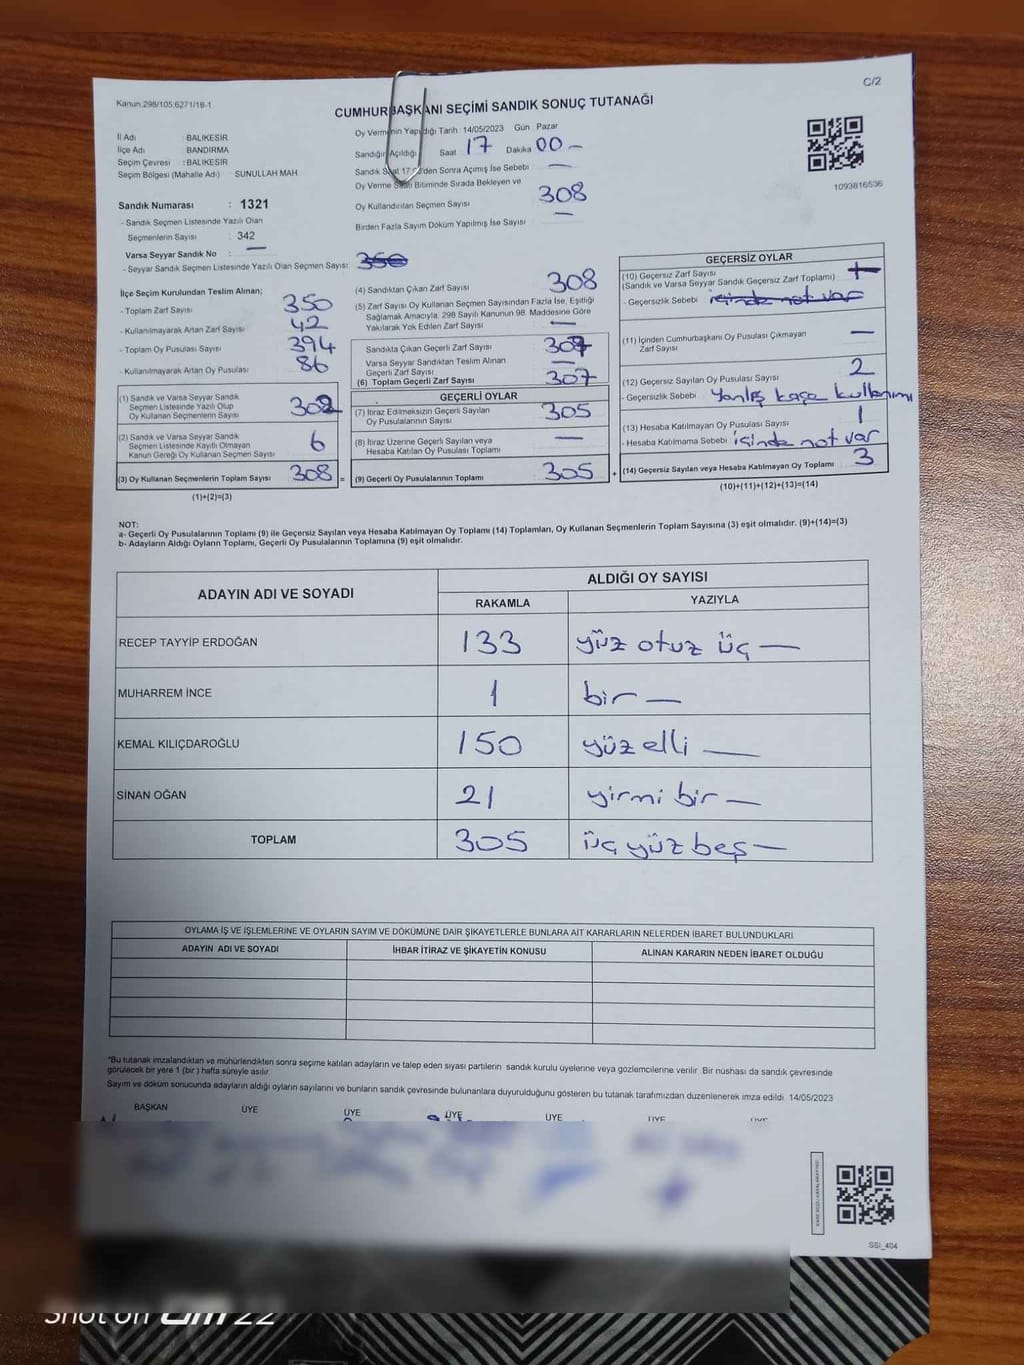 C/2
Kanun:298/105,6271/18-1
CUMHURBAŞKANI SEÇİMİ SANDIK SONUÇ TUTANAĞI
İl Adı : BALIKESİR
İlçe Adı : BANDIRMA
Seçim Çevresi : BALIKESİR
Seçim Bölgesi (Mahalle Adı) : SUNULLAH MAH.
Sandık Numarası : 1321
- Sandık Seçmen Listesinde Yazılı Olan
Seçmenlerin Sayısı : 342
Varsa Seyyar Sandık No : —
- Seyyar Sandık Seçmen Listesinde Yazılı Olan Seçmen Sayısı: 350
Oy Vermenin Yapıldığı Tarih 14/05/2023 Gün Pazar
Sandığın Açıldığı Saat 17 Dakika 00 —
Sandık Saat 17 'den Sonra Açmış İse Sebebi —
Oy Verme Süresi Bitiminde Sırada Bekleyen ve
Oy Kullandırılan Seçmen Sayısı 308
Birden Fazla Sayım Döküm Yapılmış İse Sayısı —
1093816536
İlçe Seçim Kurulundan Teslim Alınan;
- Toplam Zarf Sayısı 350
- Kullanılmayarak Artan Zarf Sayısı 42
- Toplam Oy Pusulası Sayısı 394
- Kullanılmayarak Artan Oy Pusulası 86
(1) Sandık ve Varsa Seyyar Sandık
Seçmen Listesinde Yazılı Olup
Oy Kullanan Seçmenlerin Sayısı 302
(2) Sandık ve Varsa Seyyar Sandık
Seçmen Listesinde Kayıtlı Olmayan
Kanun Gereği Oy Kullanan Seçmen Sayısı 6
(3) Oy Kullanan Seçmenlerin Toplam Sayısı 308 =
(1)+(2)=(3)
(4) Sandıktan Çıkan Zarf Sayısı 308
(5) Zarf Sayısı Oy Kullanan Seçmen Sayısından Fazla İse, Eşitliği
Sağlamak Amacıyla, 298 Sayılı Kanunun 98. Maddesine Göre
Yakılarak Yok Edilen Zarf Sayısı —
Sandıkta Çıkan Geçerli Zarf Sayısı 307
Varsa Seyyar Sandıktan Teslim Alınan
Geçerli Zarf Sayısı —
(6) Toplam Geçerli Zarf Sayısı 307
GEÇERLİ OYLAR
(7) İtiraz Edilmeksizin Geçerli Sayılan
Oy Pusulasının Sayısı 305
(8) İtiraz Üzerine Geçerli Sayılan veya
Hesaba Katılan Oy Pusulası Toplamı —
(9) Geçerli Oy Pusulalarının Toplamı 305 +
GEÇERSİZ OYLAR
(10) Geçersiz Zarf Sayısı
(Sandık ve Varsa Seyyar Sandık Geçersiz Zarf Toplamı)
- Geçersizlik Sebebi içinde not var
(11) İçinden Cumhurbaşkanı Oy Pusulası Çıkmayan
Zarf Sayısı —
(12) Geçersiz Sayılan Oy Pusulası Sayısı 2
- Geçersizlik Sebebi Yanlış kaşe kullanımı
(13) Hesaba Katılmayan Oy Pusulası Sayısı 1
- Hesaba Katılmama Sebebi içinde not var
(14) Geçersiz Sayılan veya Hesaba Katılmayan Oy Toplamı 3
(10)+(11)+(12)+(13)=(14)
NOT:
a- Geçerli Oy Pusulalarının Toplamı (9) ile Geçersiz Sayılan veya Hesaba Katılmayan Oy Toplamı (14) Toplamları, Oy Kullanan Seçmenlerin Toplam Sayısına (3) eşit olmalıdır. (9)+(14)=(3)
b- Adayların Aldığı Oyların Toplamı, Geçerli Oy Pusulalarının Toplamına (9) eşit olmalıdır.
ADAYIN ADI VE SOYADI ALDIĞI OY SAYISI
RAKAMLA YAZIYLA
RECEP TAYYİP ERDOĞAN 133 yüz otuz üç —
MUHARREM İNCE 1 bir —
KEMAL KILIÇDAROĞLU 150 yüz elli —
SİNAN OĞAN 21 yirmi bir —
TOPLAM 305 üç yüz beş —
OYLAMA İŞ VE İŞLEMLERİNE VE OYLARIN SAYIM VE DÖKÜMÜNE DAİR ŞİKAYETLERLE BUNLARA AİT KARARLARIN NELERDEN İBARET BULUNDUKLARI
ADAYIN ADI VE SOYADI İHBAR İTİRAZ VE ŞİKAYETİN KONUSU ALINAN KARARIN NEDEN İBARET OLDUĞU
*Bu tutanak imzalandıktan ve mühürlendikten sonra seçime katılan adayların ve talep eden siyasi partilerin sandık kurulu üyelerine veya gözlemcilerine verilir. Bir nüshası da sandık çevresinde
görülecek bir yere 1 (bir) hafta süreyle asılır.
Sayım ve döküm sonucunda adayların aldığı oyların sayılarını ve bunların sandık çevresinde bulunanlara duyurulduğunu gösteren bu tutanak tarafımızdan düzenlenerek imza edildi. 14/05/2023
BAŞKAN ÜYE ÜYE ÜYE ÜYE ÜYE ÜYE
SSI_404
Shot on